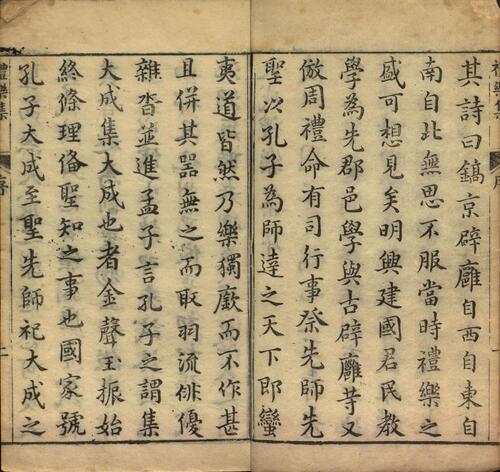 其詩曰鎬京辟廱自西自東自
南自北無思不服當時禮樂之
盛可想見矣明興建國君民教
學為先郡邑學與古辟廱䓁又
倣周禮命有司行事祭先師先
聖以孔子為師達之天下即蠻
夷道皆然乃樂獨廞而不作甚
且併其噐無之而取羽流俳優
雜沓並進孟子言孔子之謂集
大成集大成也者金聲玉振始
終條理俻聖知之事也國家號
孔子大成至聖先師祀大成之
禮樂集 序 二